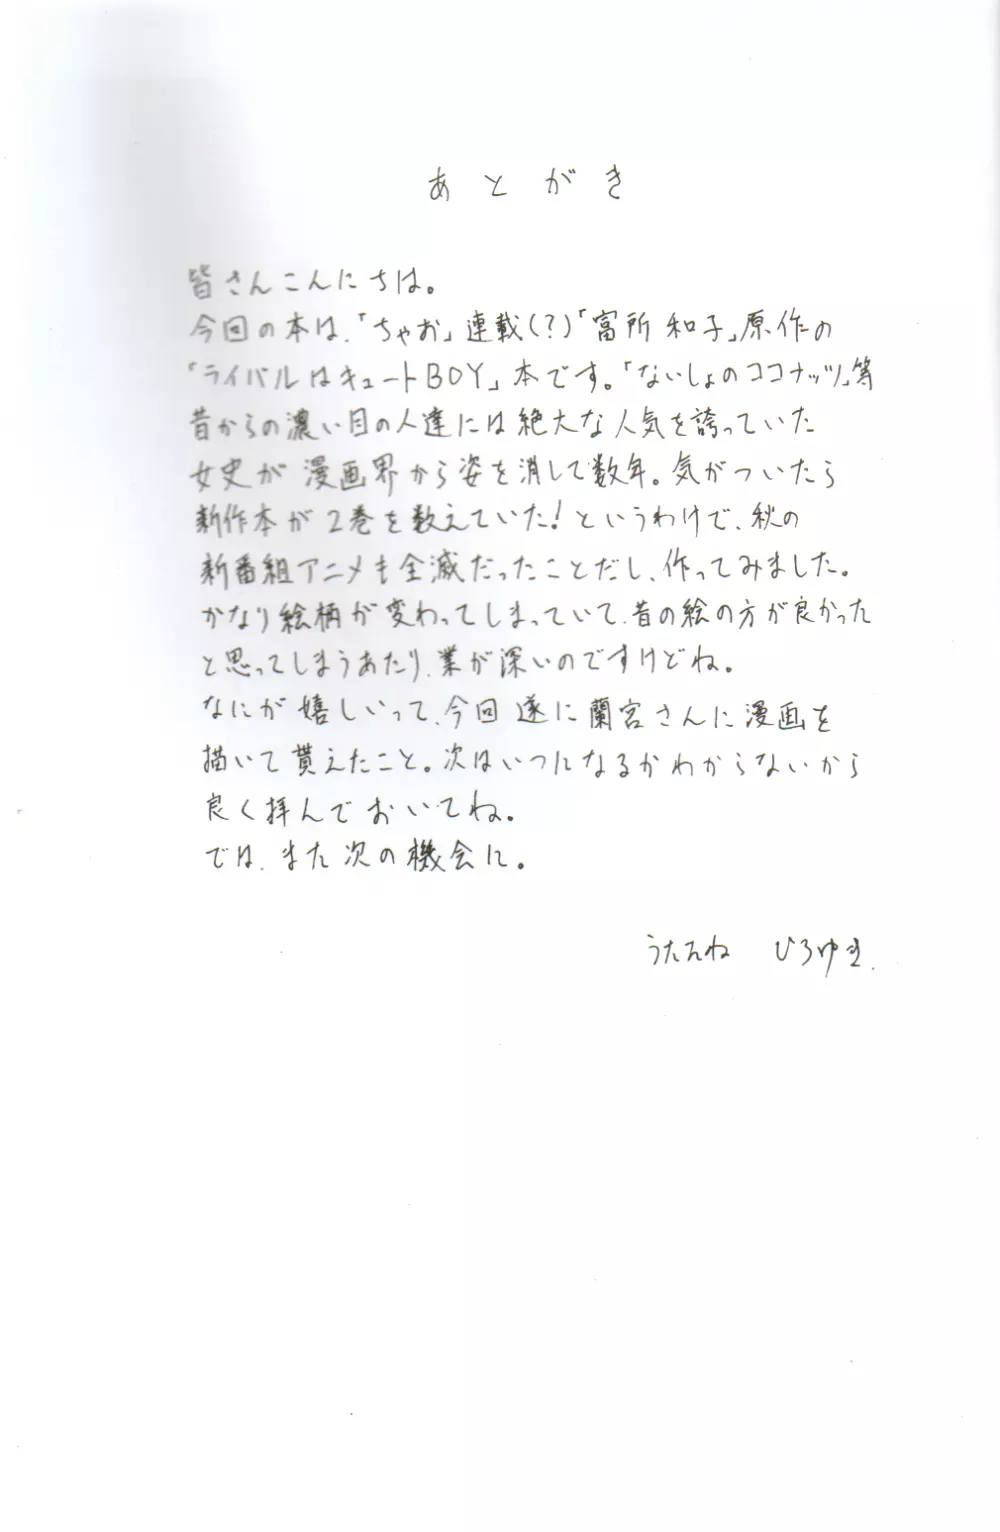 あとがき
皆さんこんにちは。
今回の本は、「ちゃお」連載(?)「富所 和子」原作の
「ライバルはキュートBOY」本です。「ないしょのココナッツ」等
昔からの濃い目の人達には絶大な人気を誇っていた
女史が漫画界から姿を消して数年。気がついたら
新作本が2巻を数えていた!というわけで、秋の
新番組アニメも全滅だったことだし、作ってみました。
かなり絵柄が変わってしまっていて、昔の絵の方が良かった
と思ってしまうあたり、業が深いのですけどね。
なにが嬉しいって、今回遂に蘭宮さんに漫画を
描いて貰えたこと。次はいつになるかわからないから
良く拝んでおいてね。
では、また次の機会に。
うたたね ひろゆき.